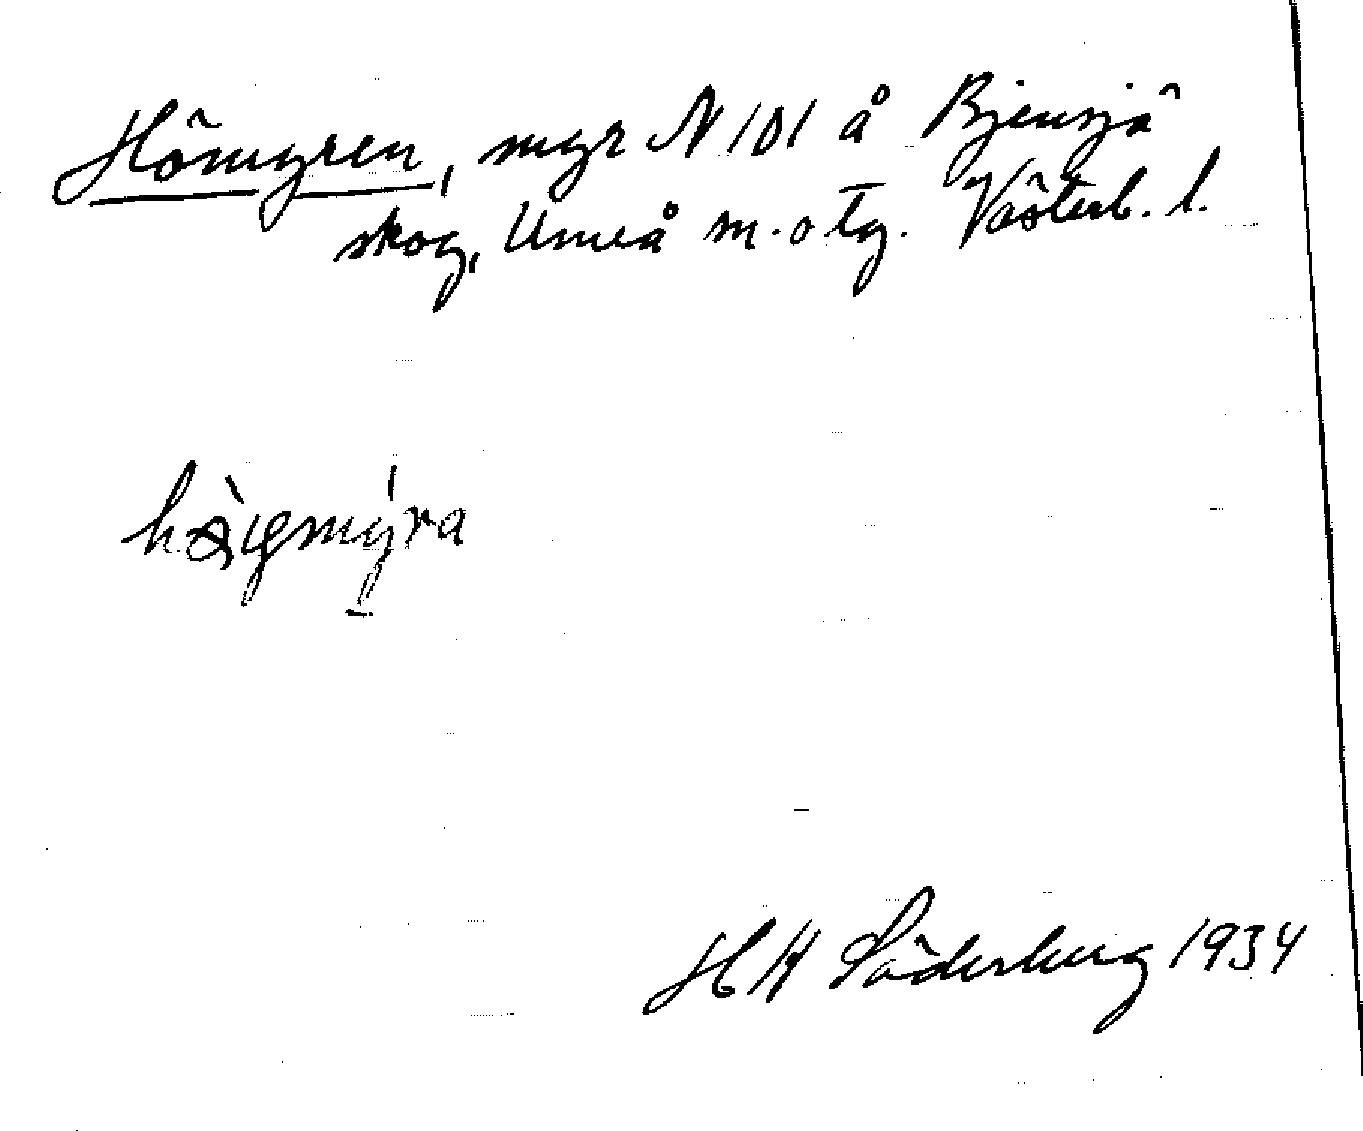 Hömyren, myr N 101 å Bjensjö
skog, Umeå m. o tg. Västerb. l.
högmýra
H H Söderberg 1934